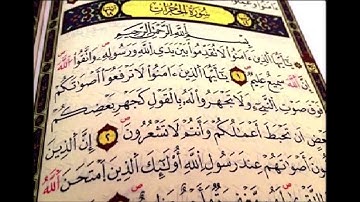 سُورَةُ الْحُجُرَاتِ
بِسْمِ اللَّهِ الرَّحْمَٰنِ الرَّحِيمِ
يَٰٓأَيُّهَا الَّذِينَ ءَامَنُوا لَا تُقَدِّمُوا بَيْنَ يَدَيِ اللَّهِ وَرَسُولِهِۦ وَاتَّقُوا اللَّهَ
إِنَّ اللَّهَ سَمِيعٌ عَلِيمٌ ١ يَٰٓأَيُّهَا الَّذِينَ ءَامَنُوا لَا تَرْفَعُوٓا أَصْوَٰتَكُمْ
فَوْقَ صَوْتِ النَّبِيِّ وَلَا تَجْهَرُوا لَهُۥ بِالْقَوْلِ كَجَهْرِ بَعْضِكُمْ
أَن تَحْبَطَ أَعْمَٰلُكُمْ وَأَنتُمْ لَا تَشْعُرُونَ ٢ إِنَّ الَّذِينَ
أَصْوَٰتَهُمْ عِندَ رَسُولِ اللَّهِ أُو۟لَٰٓئِكَ الَّذِينَ امْتَحَنَ اللَّهُ